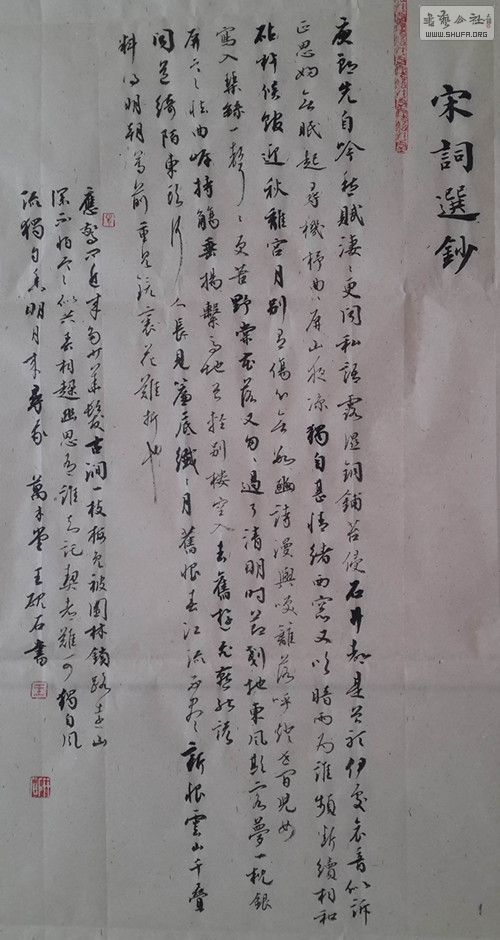 宋詞選鈔
庾郎先自吟愁賦淒〻更聞私語露濕銅鋪苔侵石井都是曾聽伊處哀音似訴
正思婦無眠起尋機杼曲〻屏山夜涼獨自甚情緒西窗又吹暗雨為誰頻斷續相和
砧杵候館迎秋離宮月別有傷心無數豳詩漫與笑離落呼燈世間兒女
寫入琴絲一聲〻更苦野棠花落又匆〻過了清明時節剗地東風欺客夢一枕銀
屏寒怯曲岸持觴垂楊繫馬此地曾輕別樓空人去舊遊飛燕能說
聞道綺陌東頭行人長見簾底纖〻月舊恨春江流不盡新恨雲山千疊
料得明朝尊前重見鏡裏花難折也
應驚問近來多少華髮古澗一枝梅免被園林鎖路遠山
深不怕寒似共春相趖幽思有誰知託契都難可獨自風
流獨自香明月來尋我 萬木堂 王硯石書
書藝公社
WWW.SHUFA.ORG